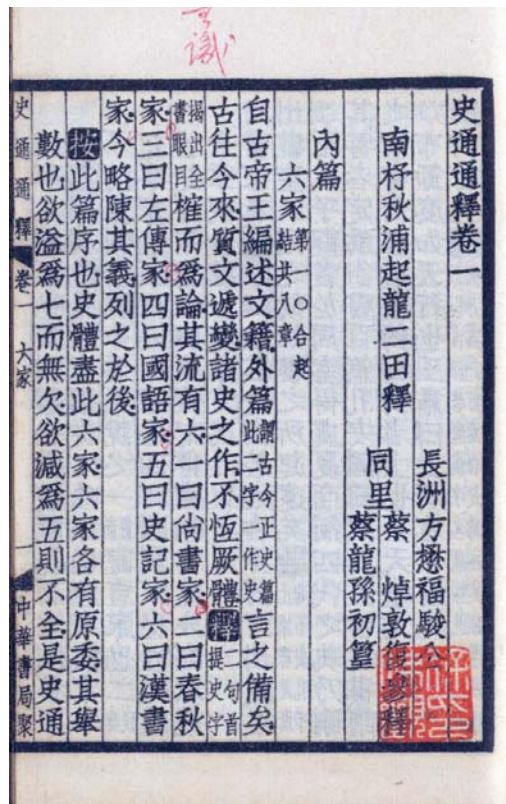 史通通釋卷一
長洲方懋福駿公
南杼秋浦起龍二田釋
同里
蔡焯敦復參釋
蔡龍孫初篁
內篇
六家第一〇合起結共八章
自古帝王編述文籍外篇謂古今正史篇此二字一作史言之備矣
古往今來質文遞變諸史之作不恆厥體釋二句首提史字
揭出全書眼目榷而爲論其流有六一曰尙書家二曰春秋
家三曰左傳家四曰國語家五曰史記家六曰漢書
家今略陳其義列之於後
按此篇序也史體盡此六家六家各有原委其舉
數也欲溢爲七而無欠欲減爲五則不全是史通
史通通釋 卷一 六家 一 中華書局聚